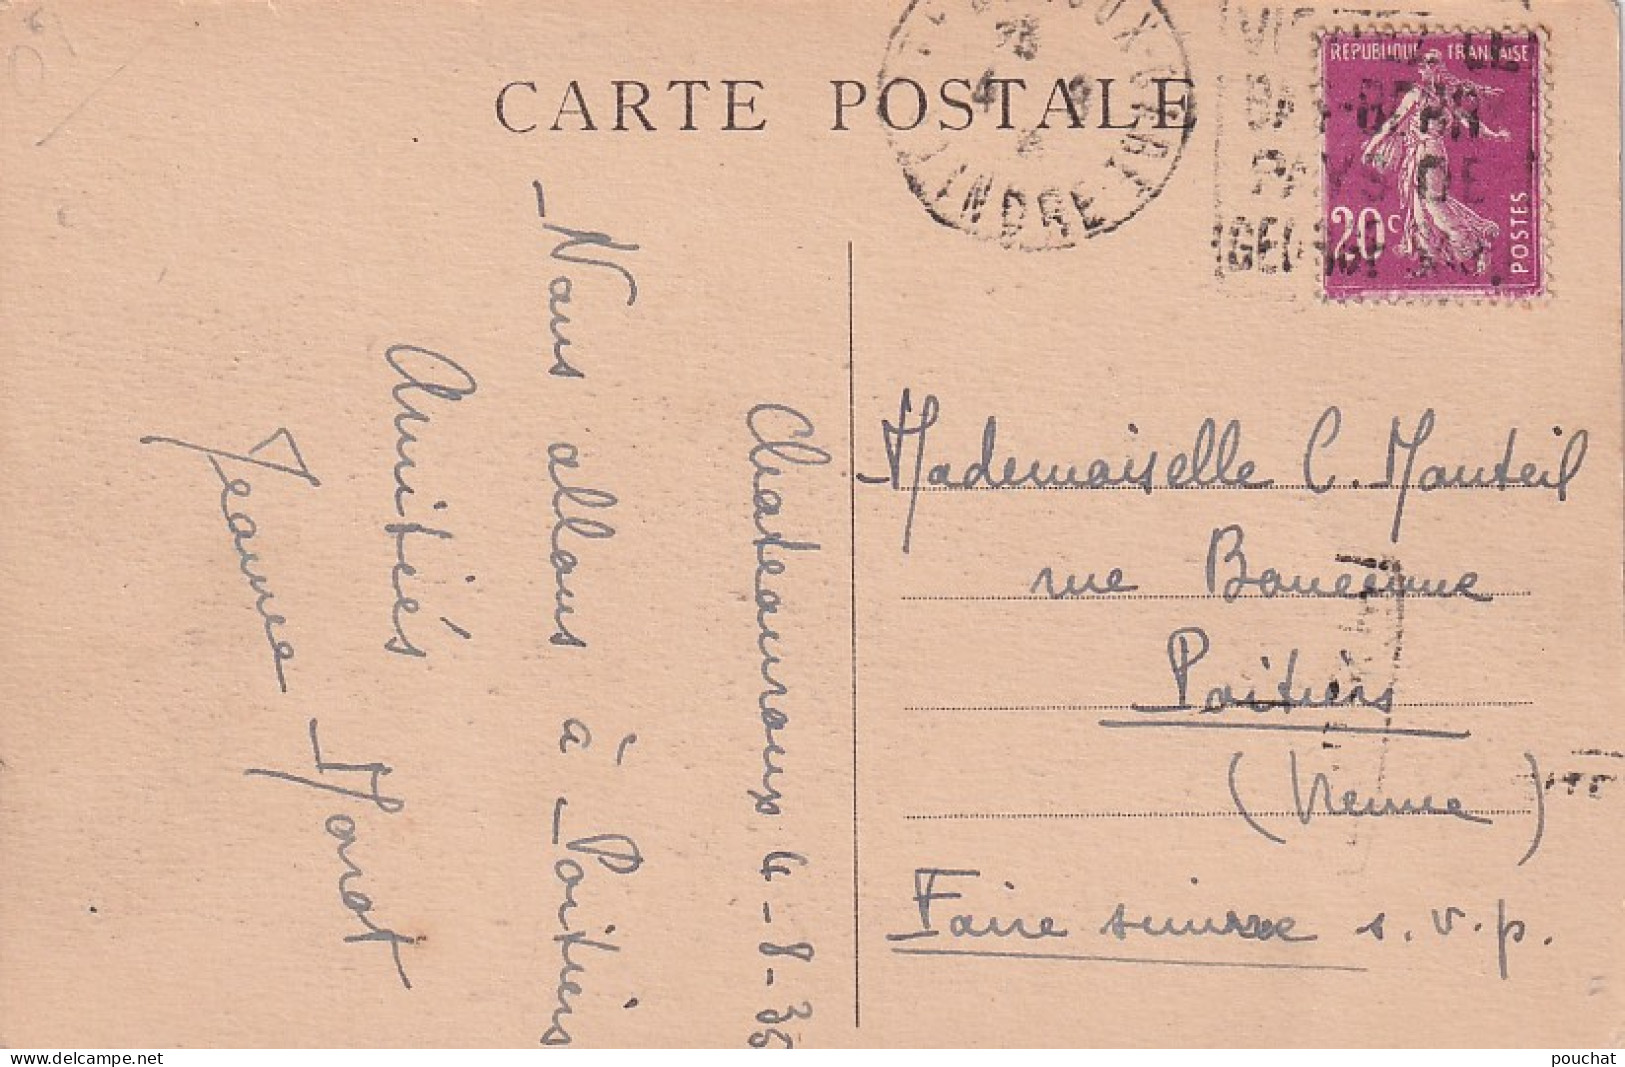 CARTE POSTALE
INDRE
RÉPUBLIQUE FRANÇAISE
20c
POSTES
PAYS DE
Chateauroux 4-8-35
Nous allons à Poitiers
Amitiés
Jeanne Morot
Mademoiselle C. Manteil
rue Boncenne
Poitiers
(Vienne)
Faire suivre s.v.p.
www.delcampe.net
pouchat